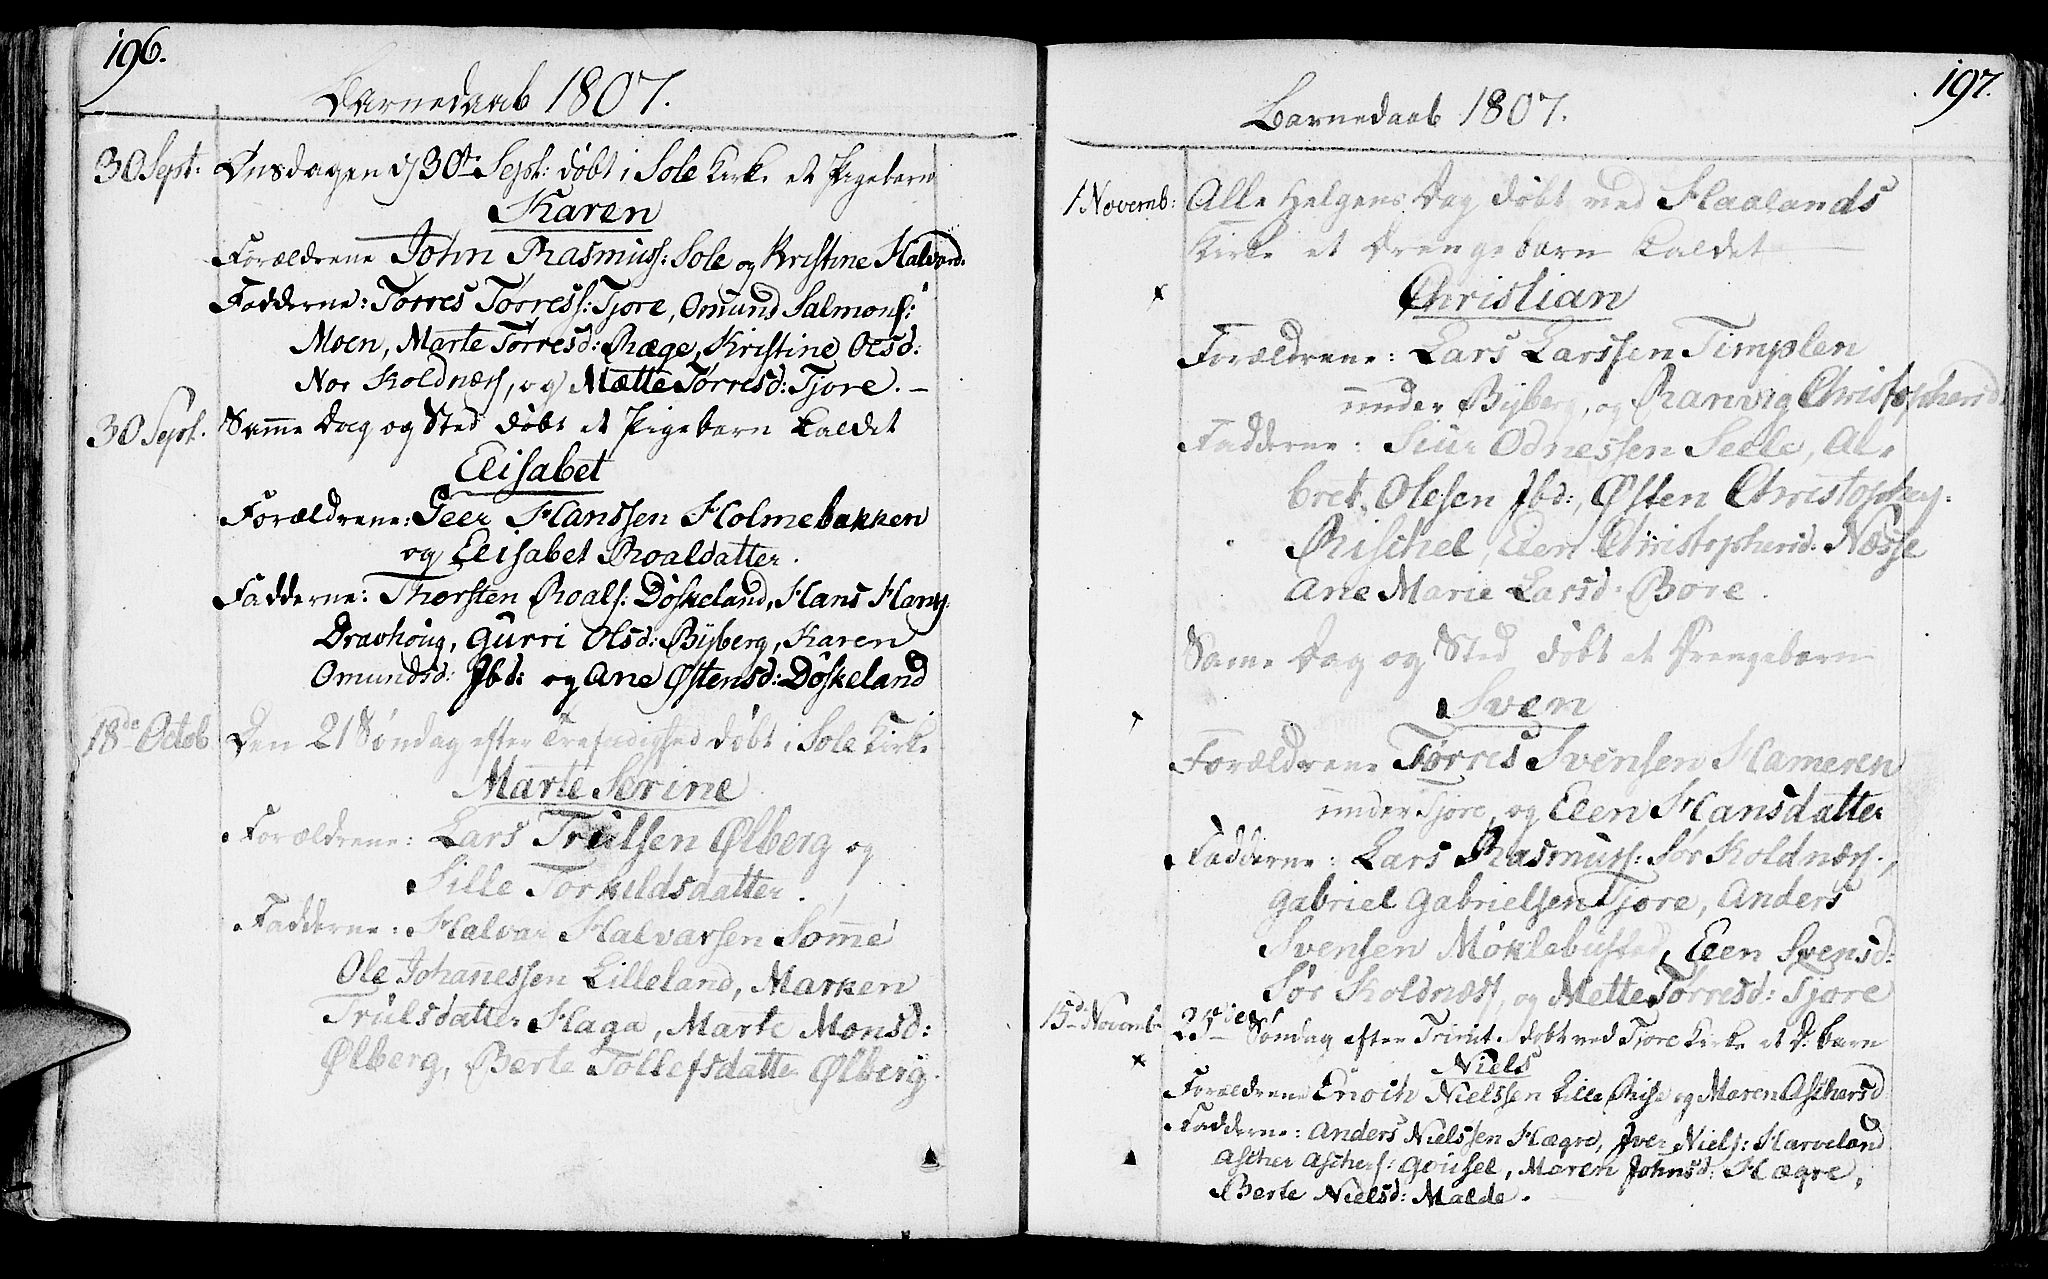 196.
Barnedaab 1807.
30 Sept: Onsdagen d 30te Sept: døbt i Sole Kirke et Pigebarn
Karen
Forældrene John Rasmuss: Sole og Kristine Halvard.
Fadderne: Torres Torress: Tjore, Omund Salmons:
Moen, Marte Torresd: Ræge, Kristine Olsd:
Nor Koldnæss, og Mætte Tørresd: Tjore. –
30 Sept. Samme Dag og Sted døbt et Pigebarn kaldet
Elisabet
Forældrene: Geer Hanssen Holmebakken
og Elisabet Roaldatter.
Fadderne: Thorsten Roals: Døskeland, Hans Hans:
Dravhoug, Gurri Olsd: Byberg, Karen
Omundsd: Ibd: og Ane Østensd: Døskeland
18de Octob Den 21 Søndag efter Trefoldighed døbt i Sole Kirke
Marte Serine
Forældrene: Lars Trulsen Ølberg og
Sille Torkildsdatter.
Fadderne: Halvar Halvarsen Somme
Ole Johannessen Lilleland, Marken
Trulsdatter Haga, Marte Monsd:
Ølberg, Berte Tollefsdatter Ølberg.
197.
Barnedaab 1807.
1 Novemb: Alle Helgens Dag døbt ved Haalands
Kirke et Drengebarn kaldet
Christian
Forældrene: Lars Larssen Timplen
under Byberg, og Ranvig Christophersd
Fadderne: Siur Odnessen Seele, Al-
bret Olesen Ibd:, Østen Christophers:
Rischel, Elen Christophersd: Næsse
Ane Marie Larsd: Bore.
Same Dag og Sted døbt et Drengebarn
Sven
Forældrene Tørres Svensen Hameren
under Tjore, og Elen Hansdatter
Fadderne: Lars Rasmuss: Sør Koldnæss.,
Gabriel Gabrielsen Tjore, Anders
Svensen Møklebusted, Elen Svensd:
Sør Koldnæss, og Mette Torresd: Tjore
15de Novemb 25de Søndag efter Trinit. døbt ved Tjore Kirke et D: barn
Niels
Forældrene Enoch Nielssen Lille Rise og Maren Aschersd
Fadderne: Anders Nielssen Hægre, Iver Niels: Harveland
Ascher Aschers: Gousel, Maren Johnsd: Hægre,
Berte Nielsd: Malde.